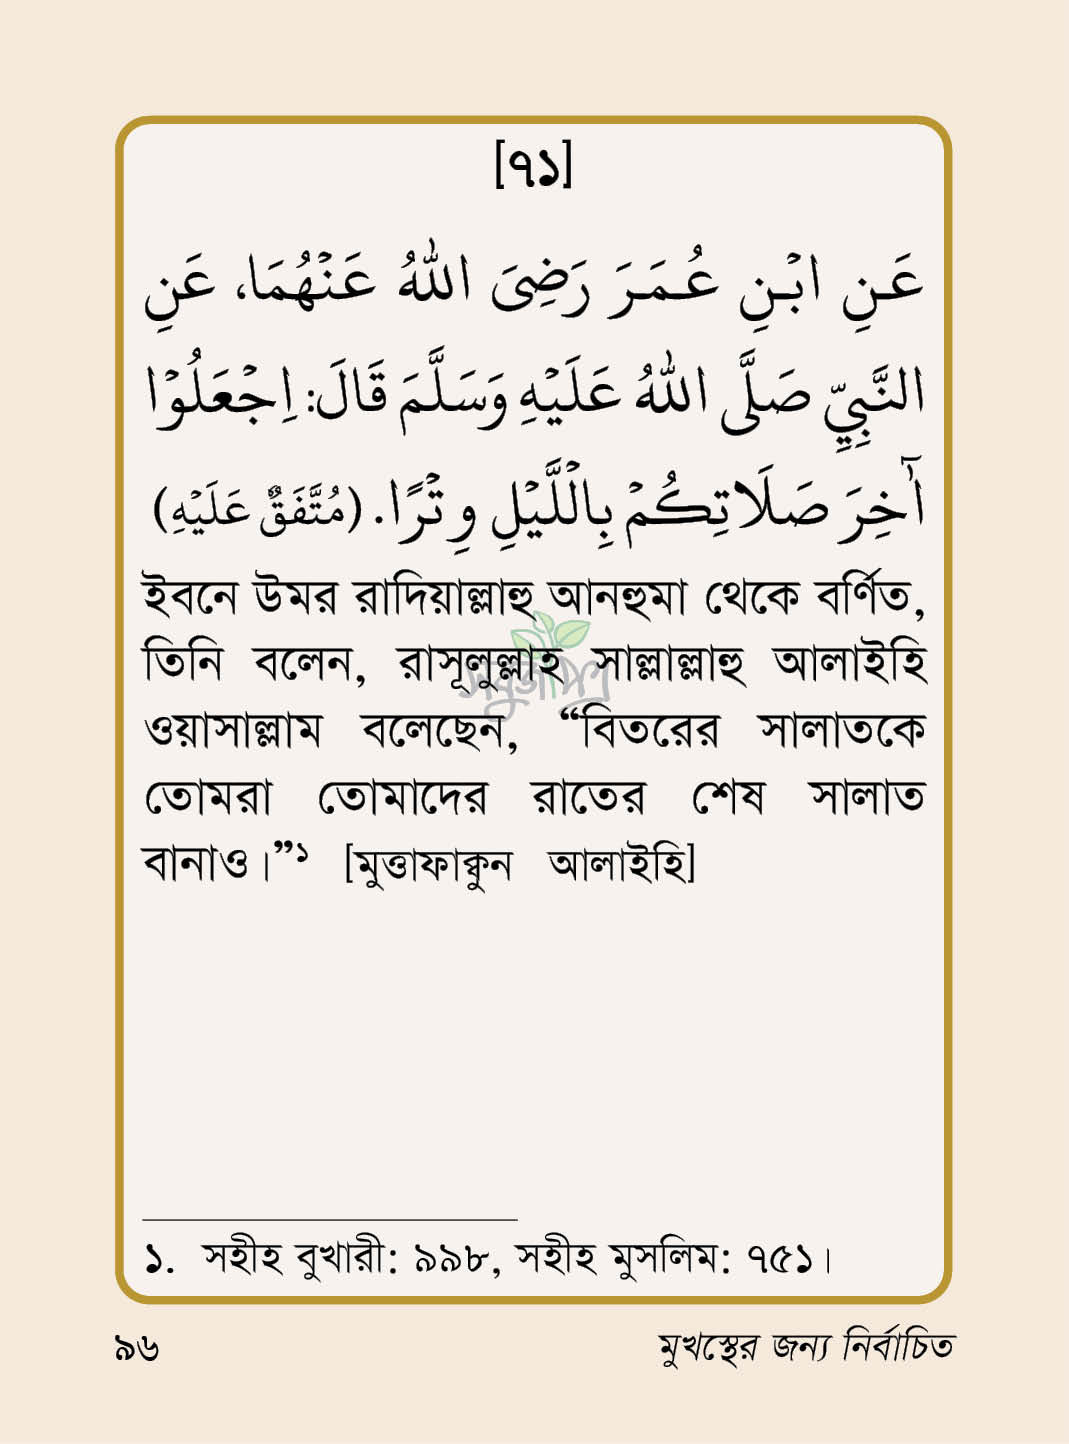 [৭১]
عَنِ ابْنِ عُمَرَ رَضِىَ اللّٰهُ عَنْهُمَا، عَنِ
النَّبِيِّ صَلَّى اللّٰهُ عَلَيْهِ وَسَلَّمَ قَالَ: اِجْعَلُوْا
آخِرَ صَلَاتِكُمْ بِالْلَّيْلِ وِتْرًا. (مُتَّفَقٌ عَلَيْهِ)
ইবনে উমর রাদিয়াল্লাহু আনহুমা থেকে বর্ণিত,
তিনি বলেন, রাসূলুল্লাহ সাল্লাল্লাহু আলাইহি
ওয়াসাল্লাম বলেছেন, “বিতরের সালাতকে
তোমরা তোমাদের রাতের শেষ সালাত
বানাও।”১ [মুত্তাফাক্বুন আলাইহি]
সবুজপত্র
১. সহীহ বুখারী: ৯৯৮, সহীহ মুসলিম: ৭৫১।
৯৬ মুখস্থের জন্য নির্বাচিত